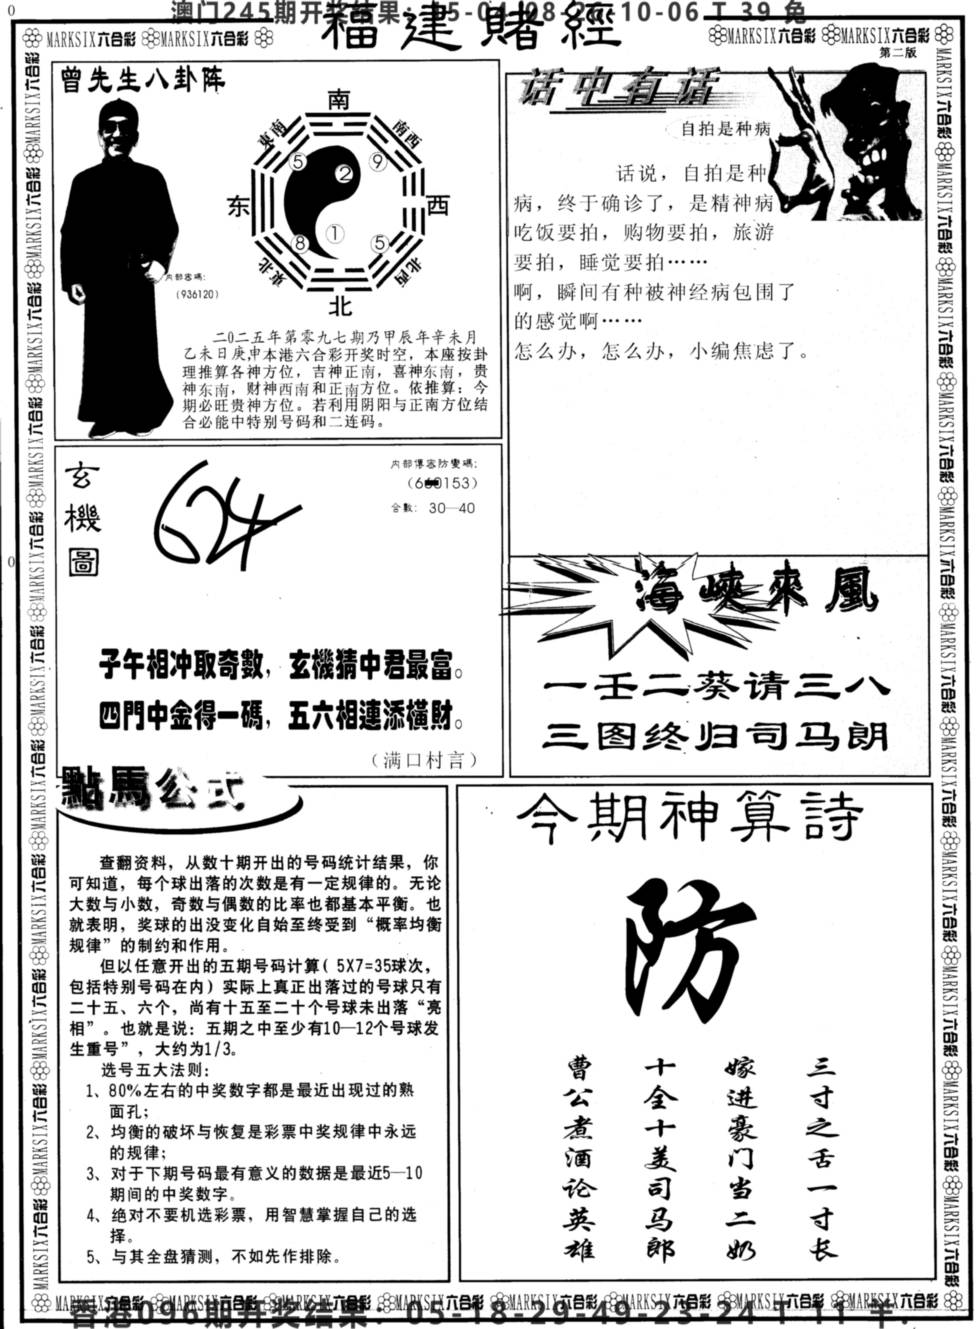 澳门245期开奖结果：
10-06 T 39 兔
福建賭經
MARKSIX六合彩 MARKSIX六合彩
MARKSIX六合彩 MARKSIX六合彩
第二版
曾先生八卦阵
南
東南
南西
东
西
東北
北西
北
5
2
9
8
1
5
内部密碼：
（936120）
二0二五年第零九七期乃甲辰年辛未月
乙未日庚申本港六合彩开奖时空，本座按卦
理推算各神方位，吉神正南，喜神东南，贵
神东南，财神西南和正南方位。依推算：今
期必旺贵神方位。若利用阴阳与正南方位结
合必能中特别号码和二连码。
话中有话
自拍是种病
话说，自拍是种
病，终于确诊了，是精神病
吃饭要拍，购物要拍，旅游
要拍，睡觉要拍……
啊，瞬间有种被神经病包围了
的感觉啊……
怎么办，怎么办，小编焦虑了。
玄機圖
624
内部傳密防變碼：
0153）
合數：30—40
子午相冲取奇數，玄機猜中君最富。
四門中金得一碼，五六相連添横財。
（满口村言）
海峽來風
一壬二葵请三八
三图终归司马朗
點馬公式
查翻资料，从数十期开出的号码统计结果，你
可知道，每个球出落的次数是有一定规律的。无论
大数与小数，奇数与偶数的比率也都基本平衡。也
就表明，奖球的出没变化自始至终受到“概率均衡
规律”的制约和作用。
但以任意开出的五期号码计算（5X7=35球次，
包括特别号码在内）实际上真正出落过的号球只有
二十五、六个，尚有十五至二十个号球未出落“亮
相”。也就是说：五期之中至少有10—12个号球发
生重号”，大约为1/3。
选号五大法则：
1、80%左右的中奖数字都是最近出现过的熟
面孔；
2、均衡的破坏与恢复是彩票中奖规律中永远
的规律；
3、对于下期号码最有意义的数据是最近5—10
期间的中奖数字。
4、绝对不要机选彩票，用智慧掌握自己的选
择。
5、与其全盘猜测，不如先作排除。
今期神算詩
防
三寸之舌一寸长
嫁进豪门当二奶
十全十美司马郎
曹公煮酒论英雄
香港096期开奖结果：05-18-29-49-23-24 T 11 羊.